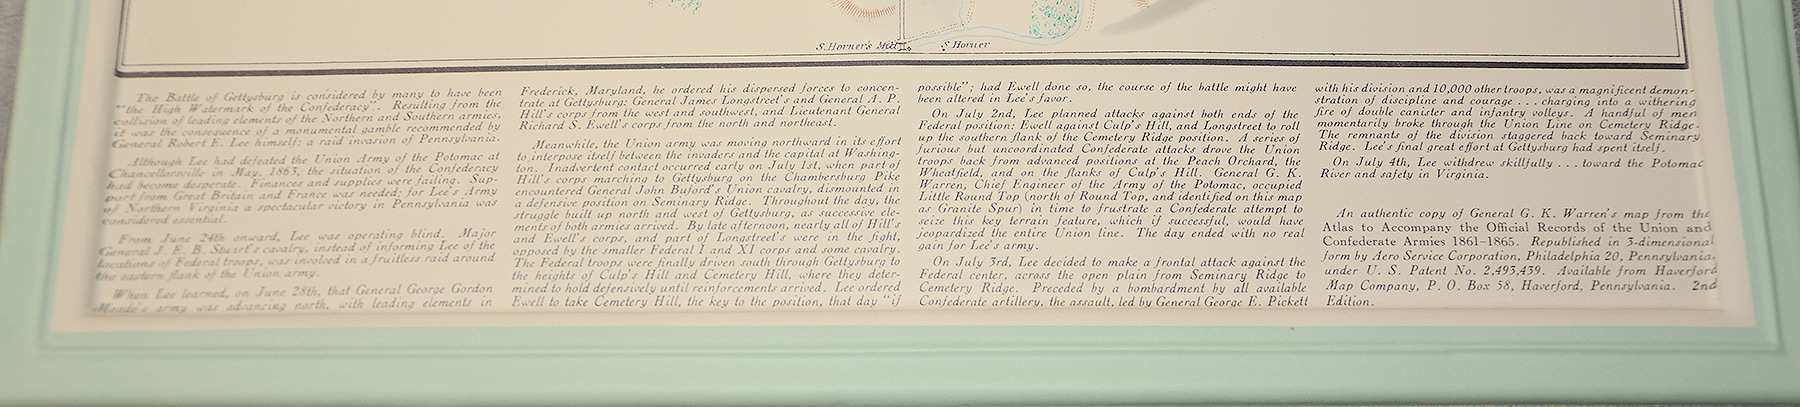 S. Horner's Mill
S. Horner
The Battle of Gettysburg is considered by many to have been
"the High Watermark of the Confederacy". Resulting from the
collision of leading elements of the Northern and Southern armies,
it was the consequence of a monumental gamble recommended by
General Robert E. Lee himself: a raid invasion of Pennsylvania.
Although Lee had defeated the Union Army of the Potomac at
Chancellorsville in May, 1863, the situation of the Confederacy
had become desperate. Finances and supplies were failing. Sup-
port from Great Britain and France was needed; for Lee's Army
of Northern Virginia a spectacular victory in Pennsylvania was
considered essential.
From June 24th onward, Lee was operating blind. Major
General J. E. B. Stuart's cavalry, instead of informing Lee of the
locations of Federal troops, was involved in a fruitless raid around
the eastern flank of the Union army.
When Lee learned, on June 28th, that General George Gordon
Meade's army was advancing north, with leading elements in
Frederick, Maryland, he ordered his dispersed forces to concen-
trate at Gettysburg: General James Longstreet's and General A. P.
Hill's corps from the west and southwest, and Lieutenant General
Richard S. Ewell's corps from the north and northeast.
Meanwhile, the Union army was moving northward in its effort
to interpose itself between the invaders and the capital at Washing-
ton. Inadvertent contact occurred early on July 1st, when part of
Hill's corps marching to Gettysburg on the Chambersburg Pike
encountered General John Buford's Union cavalry, dismounted in
a defensive position on Seminary Ridge. Throughout the day, the
struggle built up north and west of Gettysburg, as successive ele-
ments of both armies arrived. By late afternoon, nearly all of Hill's
and Ewell's corps, and part of Longstreet's were in the fight,
opposed by the smaller Federal I and XI corps and some cavalry.
The Federal troops were finally driven south through Gettysburg to
the heights of Culp's Hill and Cemetery Hill, where they deter-
mined to hold defensively until reinforcements arrived. Lee ordered
Ewell to take Cemetery Hill, the key to the position, that day "if
possible"; had Ewell done so, the course of the battle might have
been altered in Lee's favor.
On July 2nd, Lee planned attacks against both ends of the
Federal position: Ewell against Culp's Hill, and Longstreet to roll
up the southern flank of the Cemetery Ridge position. A series of
furious but uncoordinated Confederate attacks drove the Union
troops back from advanced positions at the Peach Orchard, the
Wheatfield, and on the flanks of Culp's Hill. General G. K.
Warren, Chief Engineer of the Army of the Potomac, occupied
Little Round Top (north of Round Top, and identified on this map
as Granite Spur) in time to frustrate a Confederate attempt to
seize this key terrain feature, which if successful, would have
jeopardized the entire Union line. The day ended with no real
gain for Lee's army.
On July 3rd, Lee decided to make a frontal attack against the
Federal center, across the open plain from Seminary Ridge to
Cemetery Ridge. Preceded by a bombardment by all available
Confederate artillery, the assault, led by General George E. Pickett
with his division and 10,000 other troops, was a magnificent demon-
stration of discipline and courage . . . charging into a withering
fire of double canister and infantry volleys. A handful of men
momentarily broke through the Union Line on Cemetery Ridge.
The remnants of the division staggered back toward Seminary
Ridge. Lee's final great effort at Gettysburg had spent itself.
On July 4th, Lee withdrew skillfully . . . toward the Potomac
River and safety in Virginia.
An authentic copy of General G. K. Warren's map from the
Atlas to Accompany the Official Records of the Union and
Confederate Armies 1861-1865. Republished in 3-dimensional
form by Aero Service Corporation, Philadelphia 20, Pennsylvania,
under U. S. Patent No. 2,493,439. Available from Haverford
Map Company, P. O. Box 58, Haverford, Pennsylvania. 2nd
Edition.